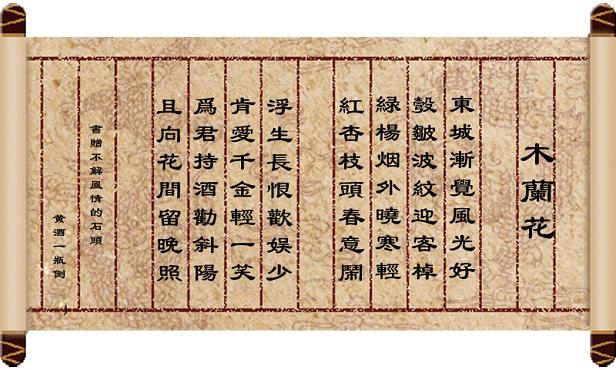 木蘭花
東城漸覺風光好
縠皺波紋迎客棹
綠楊烟外曉寒輕
紅杏枝頭春意鬧
浮生長恨歡娱少
肯愛千金輕一笑
爲君持酒勸斜陽
且向花間留晚照
書贈不解風情的石頭
黄酒一瓶倒